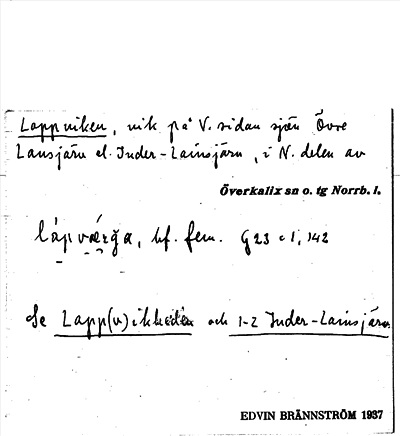 Lappviken, vik på V. sidan sjön Övre
Lansjärv el. Inder-Lainsjärv, i N. delen av
Överkalix sn o. tg Norrb. l.
lápvǽrğa, bf. fem. G 23 c 1, 142
Se Lapp(v)ikheden och 1-2 Inder-Lainsjärv
EDVIN BRÄNNSTRÖM 1937